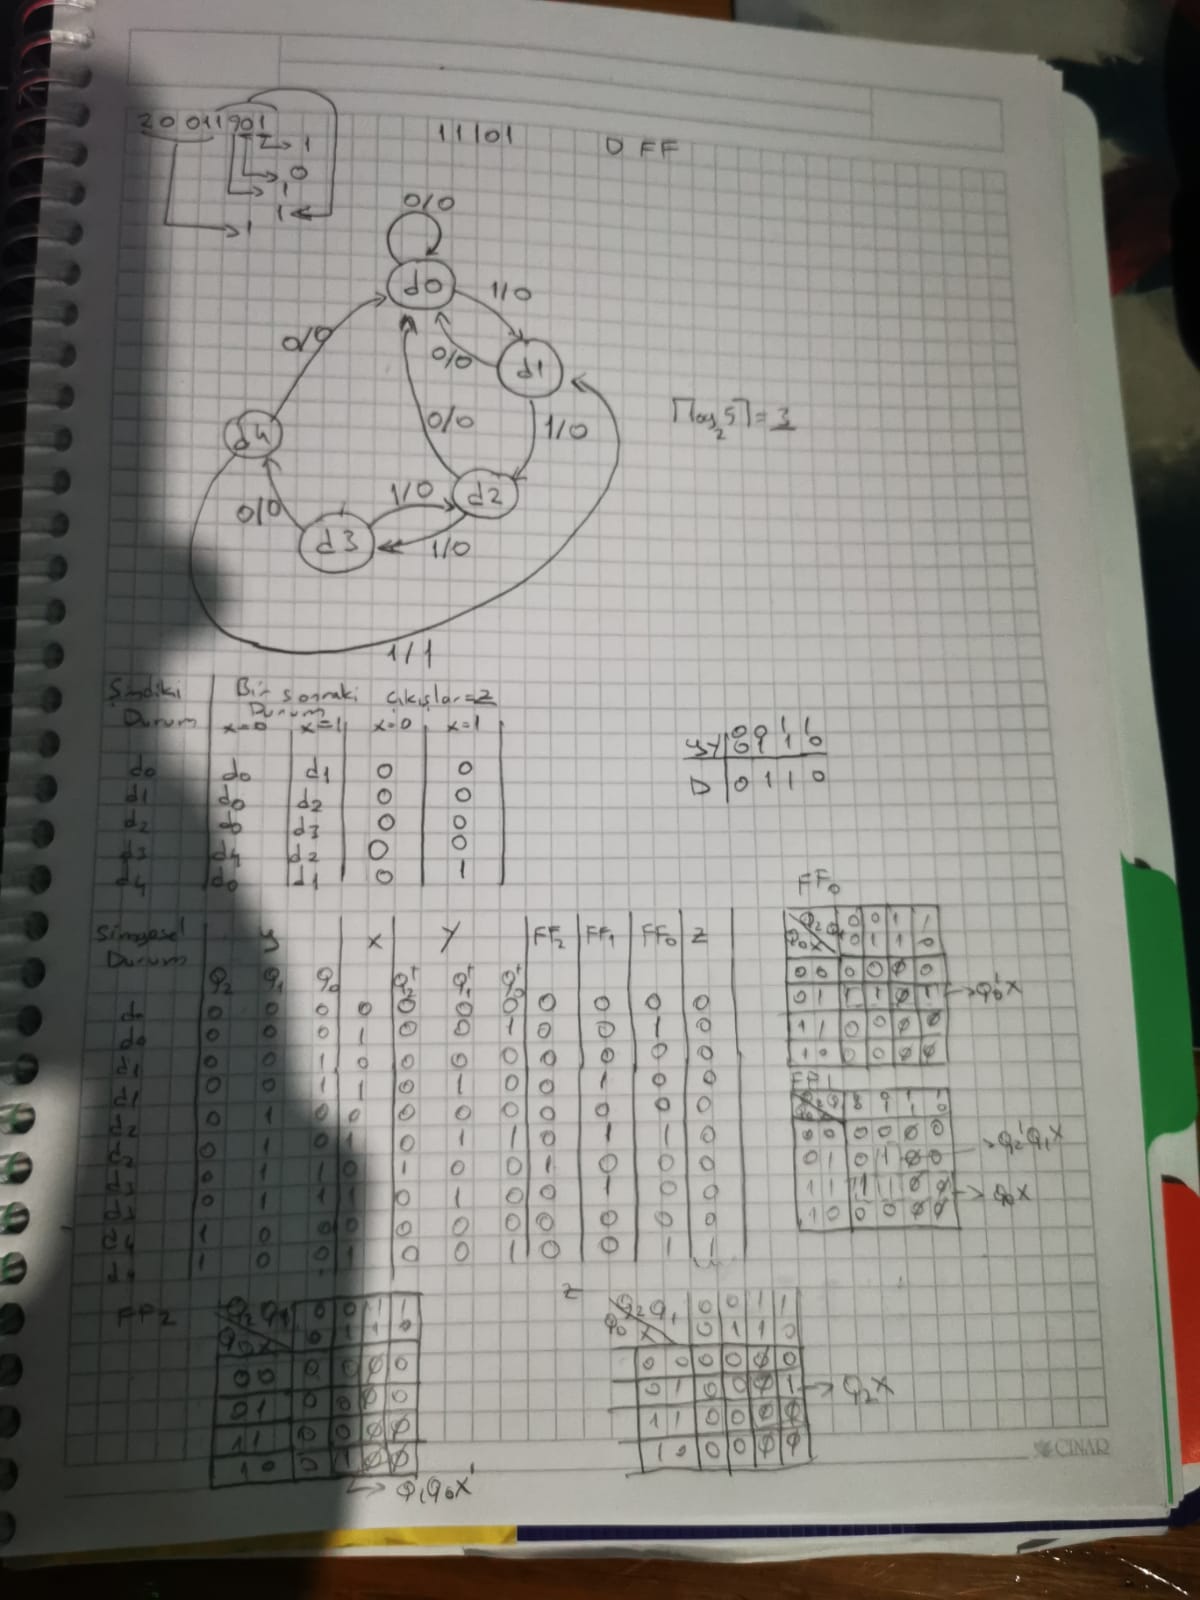 20 011901
11101
D FF
1
0
1
1
1
0/0
d0
1/0
0/0
0/0
d1
⌈log₂5⌉=3
d4
0/0
1/0
1/0
d2
0/0
d3
1/0
1/1
Şimdiki Durum | Bir sonraki Durum | Çıkışlar=Z
x=0 | x=1 | x=0 | x=1
d0 | d0 | d1 | 0 | 0
d1 | d0 | d2 | 0 | 0
d2 | d0 | d3 | 0 | 0
d3 | d4 | d2 | 0 | 0
d4 | d0 | d1 | 0 | 1
yY | 00 01 11 10
D | 0 1 1 0
Simgesel Durum | y | x | Y | FF₂ | FF₁ | FF₀ | Z
q₂ q₁ q₀ | q₂⁺ q₁⁺ q₀⁺
d0 | 0 0 0 | 0 | 0 0 0 | 0 | 0 | 0 | 0
d0 | 0 0 0 | 1 | 0 0 1 | 0 | 0 | 1 | 0
d1 | 0 0 1 | 0 | 0 0 0 | 0 | 0 | 0 | 0
d1 | 0 0 1 | 1 | 0 1 0 | 0 | 1 | 0 | 0
d2 | 0 1 0 | 0 | 0 0 0 | 0 | 0 | 0 | 0
d2 | 0 1 0 | 1 | 0 1 1 | 0 | 1 | 1 | 0
d3 | 0 1 1 | 0 | 1 0 0 | 1 | 0 | 0 | 0
d3 | 0 1 1 | 1 | 0 1 0 | 0 | 1 | 0 | 0
d4 | 1 0 0 | 0 | 0 0 0 | 0 | 0 | 0 | 0
d4 | 1 0 0 | 1 | 0 0 1 | 0 | 0 | 1 | 1
FF₀
q₂q₁ q₀x | 00 01 11 10
00 | 0 0 Ø 0
01 | 1 1 Ø 1 → q₀'x
11 | 0 0 Ø Ø
10 | 0 0 Ø Ø
FF₁
00 | 0 0 Ø 0
01 | 0 1 Ø 0 → q₂'q₁x
11 | 1 1 Ø Ø → q₀x
10 | 0 0 Ø Ø
FF₂
q₂q₁ q₀x | 00 01 11 10
00 | 0 0 Ø 0
01 | 0 0 Ø 0
11 | 0 0 Ø Ø
10 | 0 1 Ø Ø
q₁q₀x'
Z
q₂q₁ q₀x | 00 01 11 10
00 | 0 0 Ø 0
01 | 0 0 Ø 1 → q₂x
11 | 0 0 Ø Ø
10 | 0 0 Ø Ø
ÇINAR